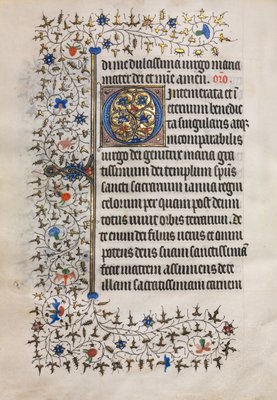 di me dulcissima uirgo maria
mater dei et mie amen. oro.
O Intemerata et i
eternum benedic
ta singularis atq;
incomparabilis
uirgo dei genitrix maria gra
tissimum dei templum spūs
sancti sacrarium ianua regni
celorum per quam post deum
totus uiuit orbis terrarum. De
te enim dei filius uerus et omni
potens deus suam sanctissimā
fecit matrem assumens de te
illam sacratissimam carnem